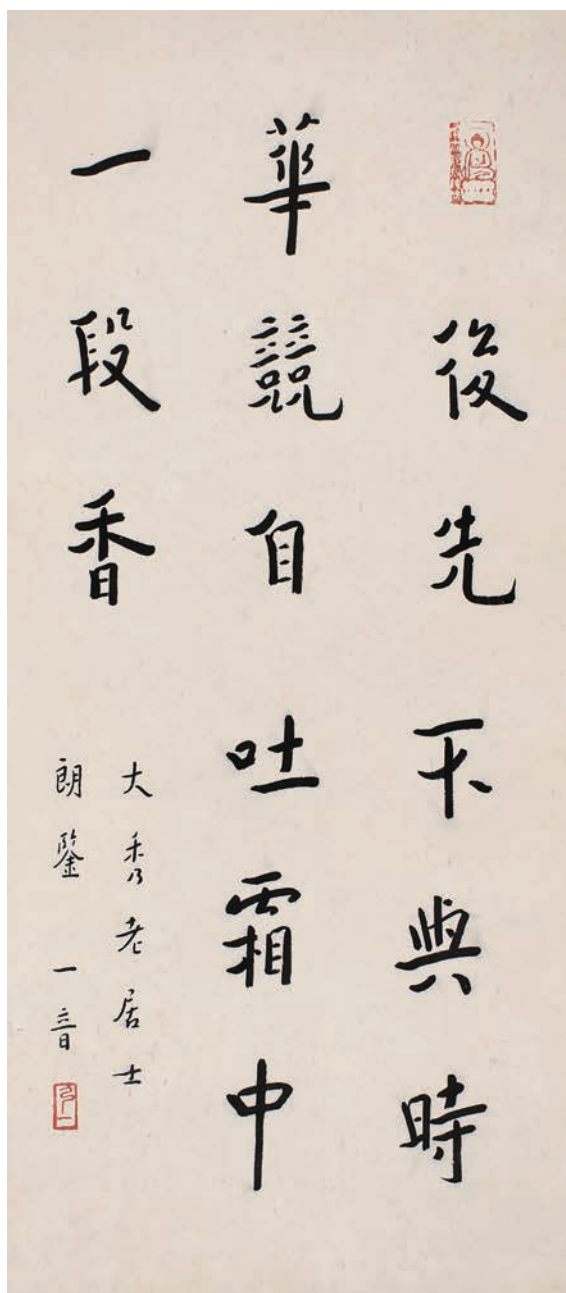 後先不與時
華競自吐霜中
一段香
大秀老居士
朗鑒 一音